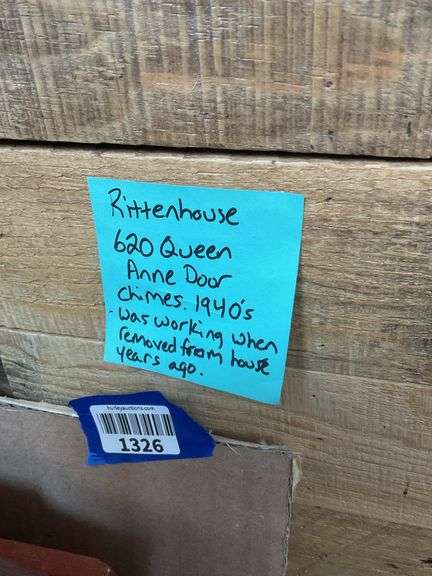 Rittenhouse
620 Queen
Anne Door
Chimes. 1940's
- was working when
removed from house
years ago.
hurleyauctions.com
1326